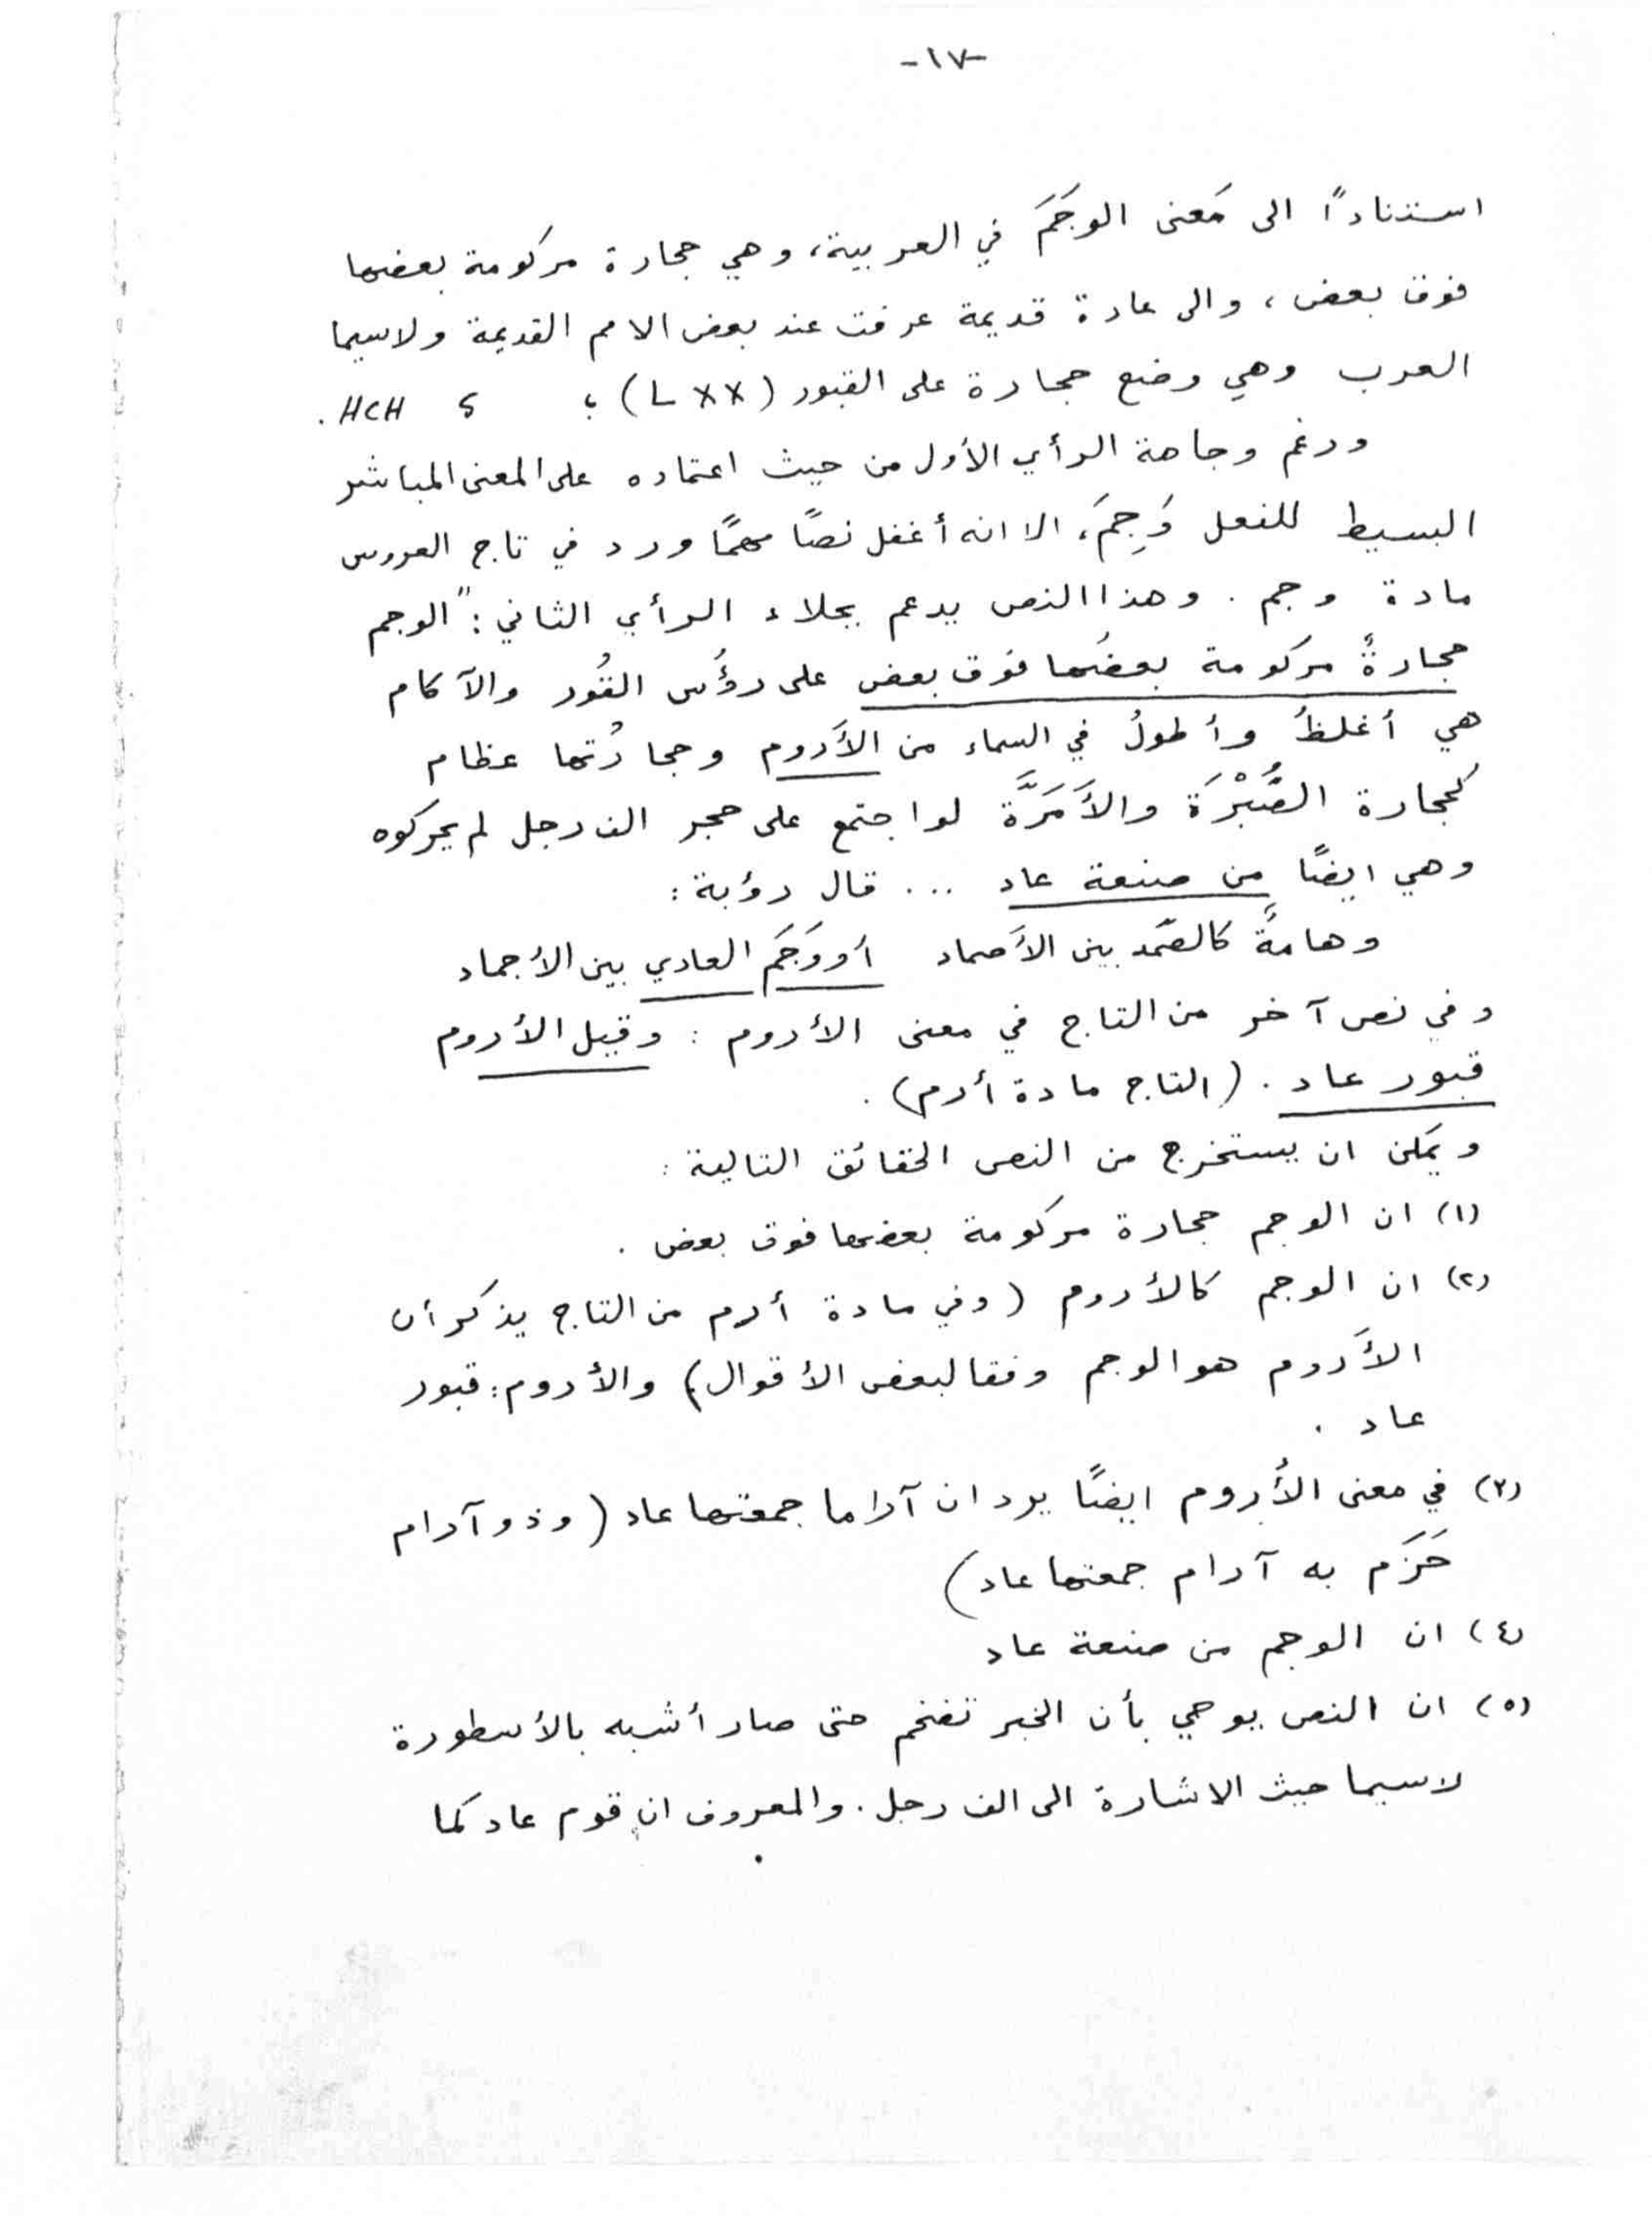 -١٧-
استناداً الى مَعنى الوجَمَ في العربية، وهي حجارة مركومة بعضها
فوق بعض، والى عادة قديمة عرفت عند بعض الامم القديمة ولاسيما
العرب وهي وضع حجارة على القبور (L XX) ؛ HCH 5 .
ورغم وجاهة الرأي الأول من حيث اعتماده على المعنى المباشر
البسيط للفعل وَجِمَ، الا انه أغفل نصًا مهمًا ورد في تاج العروس
مادة وجم . وهذا النص يدعم بجلاء الرأي الثاني : "الوجم
حجارةٌ مركومة بعضُها فوق بعض على رؤُس القُور والآكام
هي أغلظُ وأطولُ في السماء من الأَروم وحجارُتها عظام
كحجارة الصُّبْرَة والأَمَرَّة لو اجتمع على حجر الف رجل لم يحركوه
وهي ايضًا من صنعة عاد ... قال رؤبة :
وهامةٌ كالصَّمد بين الأَصماد أووَجَم العادي بين الأجماد
وفي نص آخر من التاج في معنى الأروم : وقيل الأروم
قبور عاد . (التاج مادة أرم) .
ويمكن ان يستخرج من النص الحقائق التالية :
(١) ان الوجم حجارة مركومة بعضها فوق بعض .
(٢) ان الوجم كالأروم (وفي مادة أرم من التاج يذكر أن
الأَروم هو الوجم وفقا لبعض الأقوال) والأروم : قبور
عاد .
(٣) في معنى الأُروم ايضًا يرد ان آراما جمعتها عاد (وذو آرام
حَزَم به آرام جمعتها عاد)
(٤) ان الوجم من صنعة عاد
(٥) ان النص يوحي بأن الخبر تضخم حتى صار أشبه بالأسطورة
لاسيما حيث الاشارة الى الف رجل . والمعروف ان قوم عاد كما